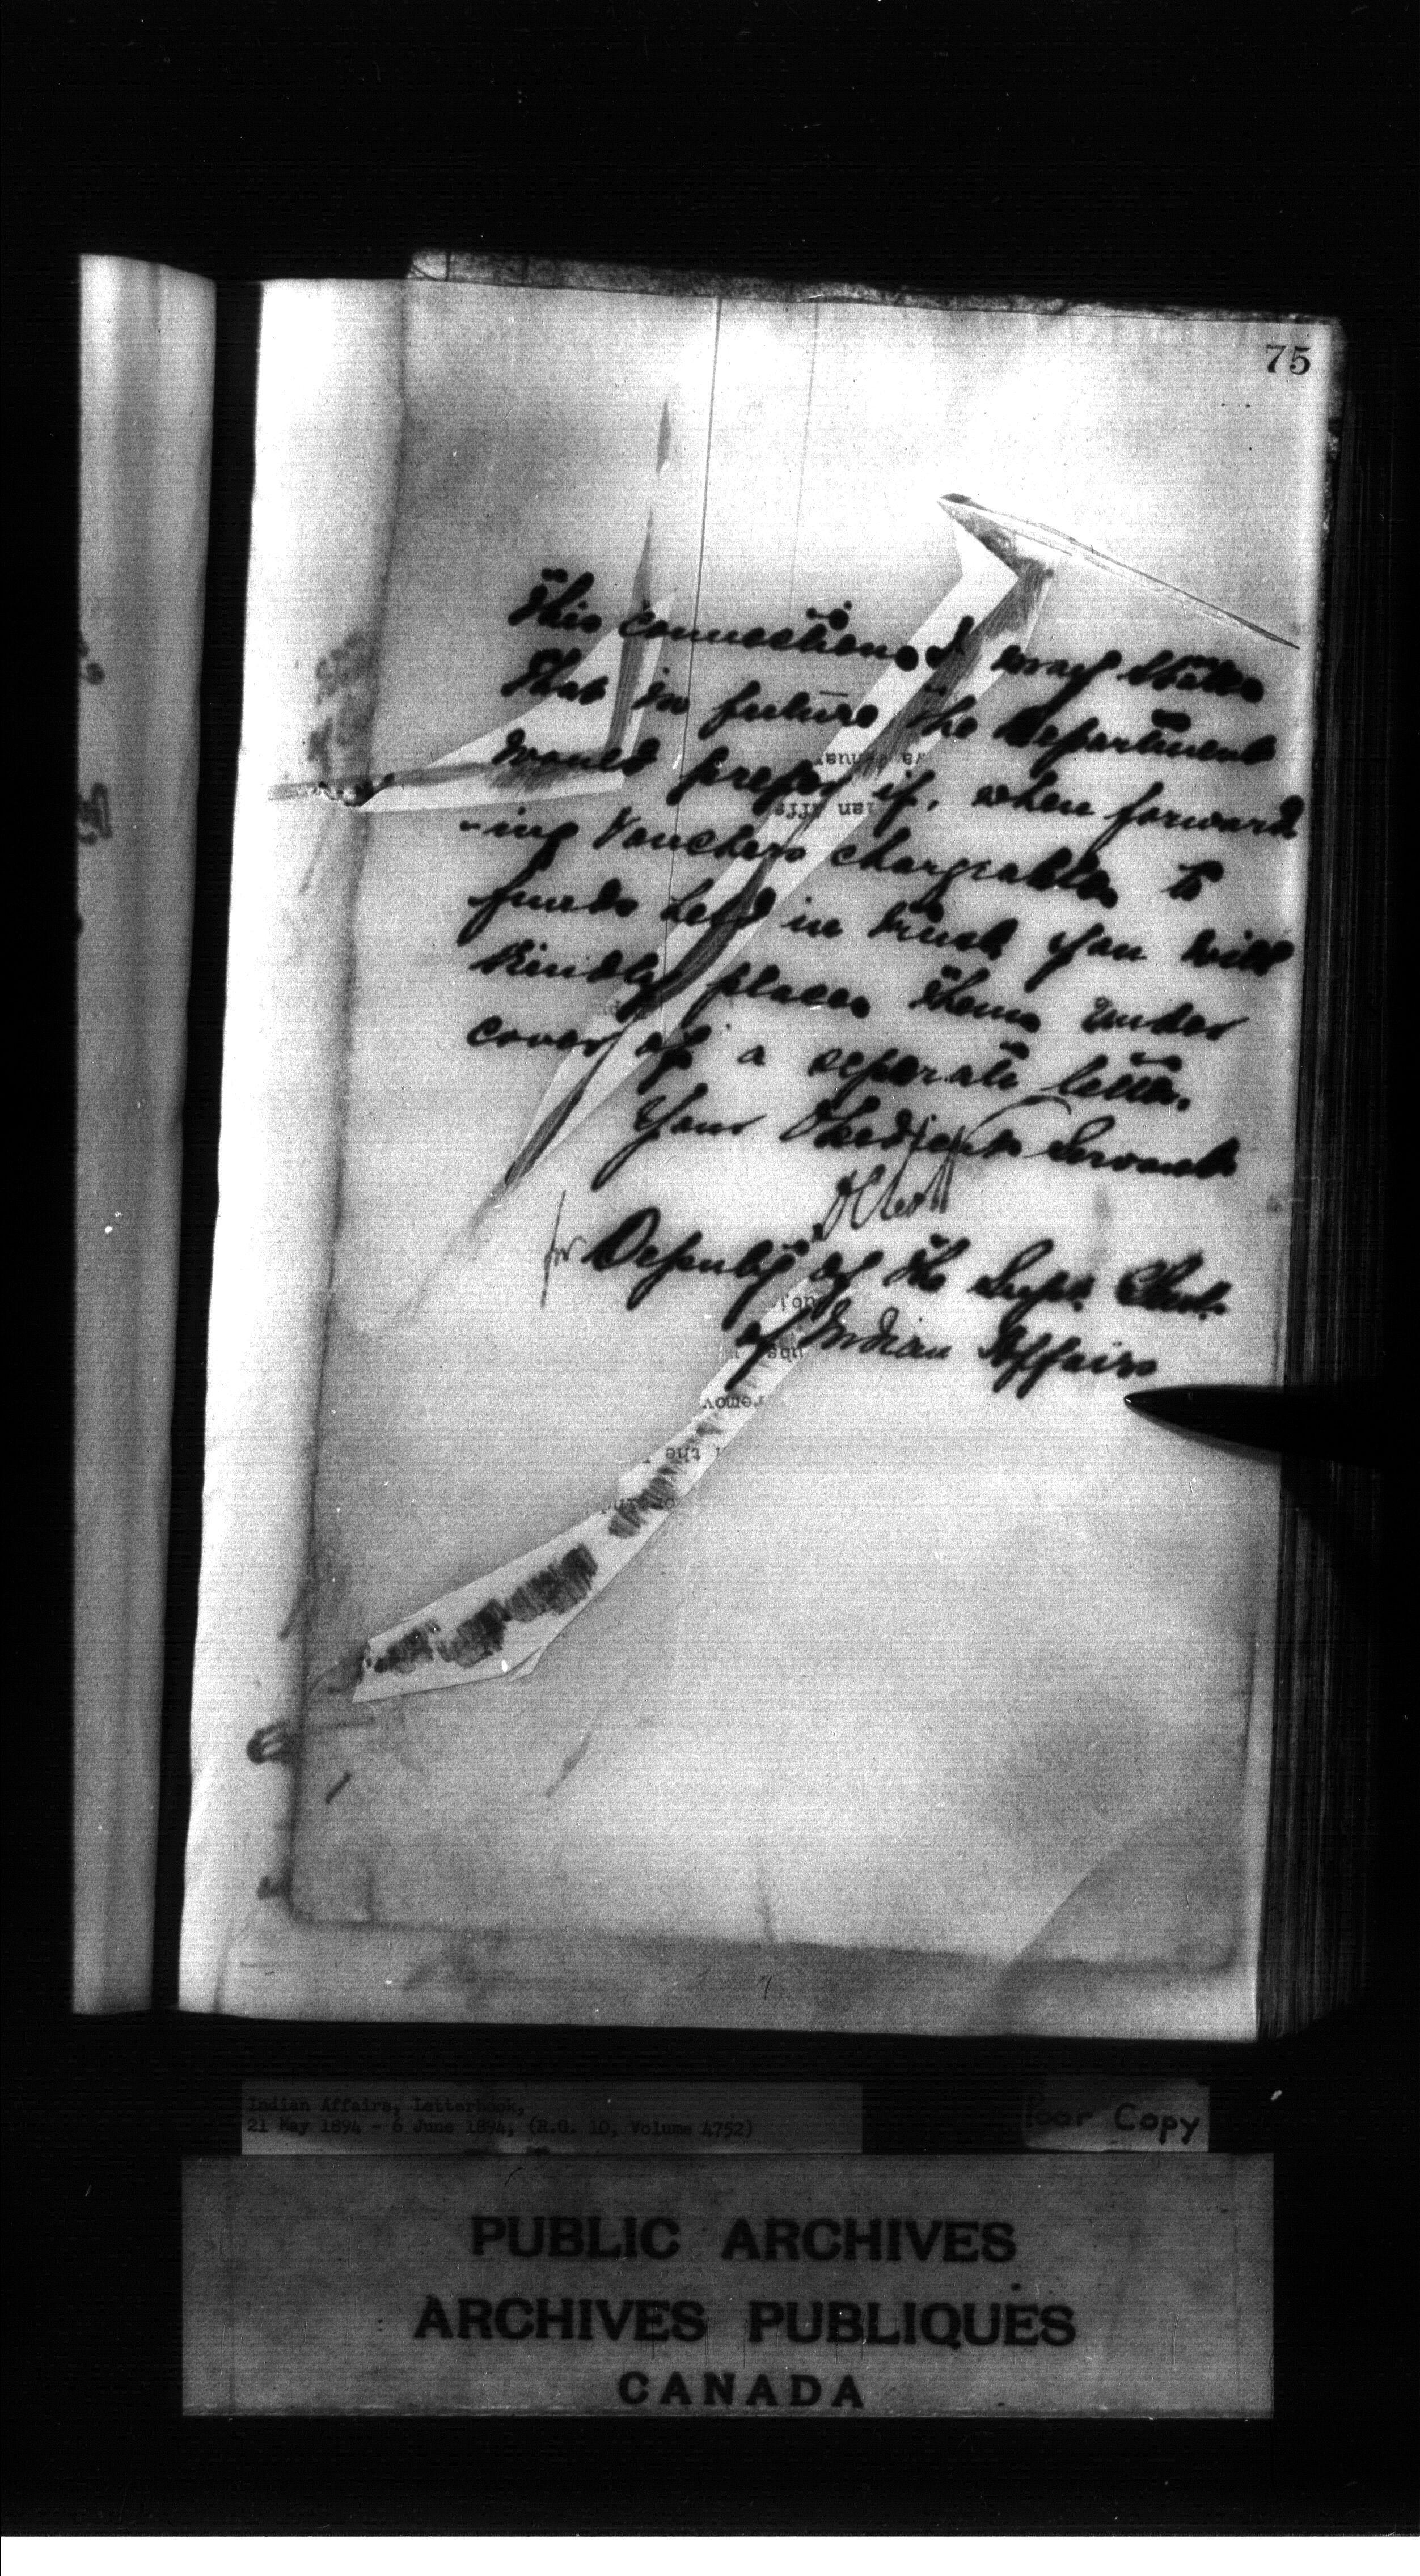 75
this connection I may state
that in future the Department
would prefer if, when forward
-ing Vouchers chargeable to
funds held in trust you will
Kindly place them under
cover of a separate letter.
Your Obedient Servant
for Deputy of the Supt. Genl.
of Indian Affairs
Indian Affairs, Letterbook,
21 May 1894 - 6 June 1894, (R.G. 10, Volume 4752)
Poor Copy
PUBLIC ARCHIVES
ARCHIVES PUBLIQUES
CANADA